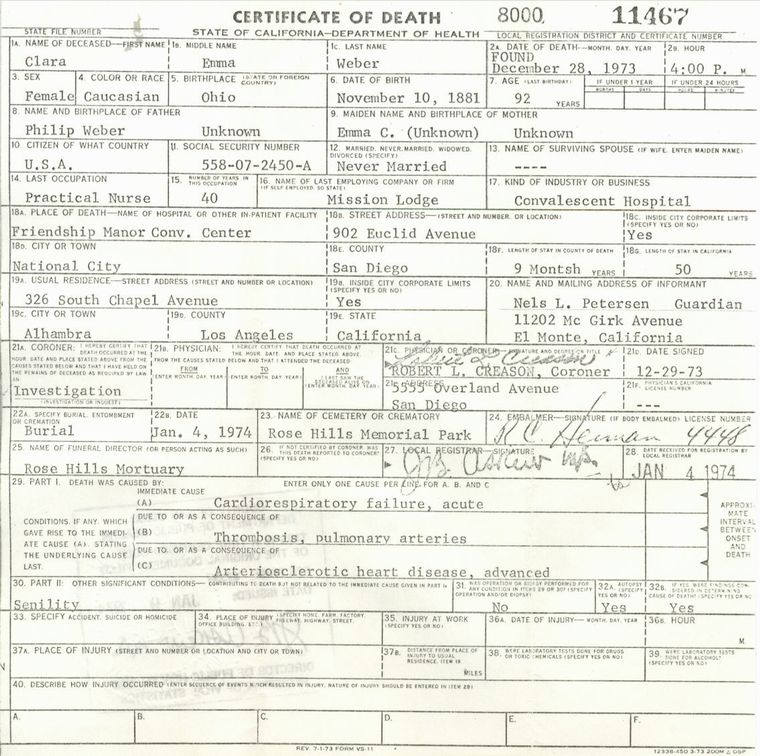 CERTIFICATE OF DEATH
8000 11467
STATE FILE NUMBER
STATE OF CALIFORNIA—DEPARTMENT OF HEALTH
LOCAL REGISTRATION DISTRICT AND CERTIFICATE NUMBER
1A. NAME OF DECEASED—FIRST NAME 1B. MIDDLE NAME 1C. LAST NAME 2A. DATE OF DEATH—MONTH, DAY, YEAR 2B. HOUR
FOUND
Clara Emma Weber December 28, 1973 4:00 P. M.
3. SEX 4. COLOR OR RACE 5. BIRTHPLACE (STATE OR FOREIGN COUNTRY) 6. DATE OF BIRTH 7. AGE (LAST BIRTHDAY) IF UNDER 1 YEAR IF UNDER 24 HOURS
MONTHS DAYS HOURS MINUTES
Female Caucasian Ohio November 10, 1881 92 YEARS
8. NAME AND BIRTHPLACE OF FATHER 9. MAIDEN NAME AND BIRTHPLACE OF MOTHER
Philip Weber Unknown Emma C. (Unknown) Unknown
10. CITIZEN OF WHAT COUNTRY 11. SOCIAL SECURITY NUMBER 12. MARRIED, NEVER MARRIED, WIDOWED, DIVORCED (SPECIFY) 13. NAME OF SURVIVING SPOUSE (IF WIFE, ENTER MAIDEN NAME)
U.S.A. 558-07-2450-A Never Married ----
14. LAST OCCUPATION 15. NUMBER OF YEARS IN THIS OCCUPATION 16. NAME OF LAST EMPLOYING COMPANY OR FIRM (IF SELF EMPLOYED, SO STATE) 17. KIND OF INDUSTRY OR BUSINESS
Practical Nurse 40 Mission Lodge Convalescent Hospital
18A. PLACE OF DEATH—NAME OF HOSPITAL OR OTHER IN-PATIENT FACILITY 18B. STREET ADDRESS—(STREET AND NUMBER, OR LOCATION) 18C. INSIDE CITY CORPORATE LIMITS (SPECIFY YES OR NO)
Friendship Manor Conv. Center 902 Euclid Avenue Yes
18D. CITY OR TOWN 18E. COUNTY 18F. LENGTH OF STAY IN COUNTY OF DEATH 18G. LENGTH OF STAY IN CALIFORNIA
National City San Diego 9 Montsh YEARS 50 YEARS
19A. USUAL RESIDENCE—STREET ADDRESS (STREET AND NUMBER OR LOCATION) 19B. INSIDE CITY CORPORATE LIMITS (SPECIFY YES OR NO) 20. NAME AND MAILING ADDRESS OF INFORMANT
326 South Chapel Avenue Yes Nels L. Petersen Guardian
19C. CITY OR TOWN 19D. COUNTY 19E. STATE 11202 Mc Girk Avenue
Alhambra Los Angeles California El Monte, California
21A. CORONER: I HEREBY CERTIFY THAT DEATH OCCURRED AT THE HOUR, DATE AND PLACE STATED ABOVE FROM THE CAUSES STATED BELOW AND THAT I HAVE HELD ON THE REMAINS OF DECEASED AS REQUIRED BY LAW AN
21B. PHYSICIAN: I HEREBY CERTIFY THAT DEATH OCCURRED AT THE HOUR, DATE AND PLACE STATED ABOVE, FROM THE CAUSES STATED BELOW AND THAT I ATTENDED THE DECEASED
FROM TO AND I LAST SAW THE DECEASED ALIVE ON
ENTER MONTH, DAY, YEAR ENTER MONTH, DAY, YEAR ENTER MONTH, DAY, YEAR
21C. PHYSICIAN OR CORONER—SIGNATURE AND DEGREE OR TITLE 21D. DATE SIGNED
ROBERT L. CREASON, Coroner 12-29-73
Investigation
(INVESTIGATION OR INQUEST)
21E. ADDRESS 21F. PHYSICIAN'S CALIFORNIA LICENSE NUMBER
5555 Overland Avenue
San Diego ---
22A. SPECIFY BURIAL, ENTOMBMENT OR CREMATION 22B. DATE 23. NAME OF CEMETERY OR CREMATORY 24. EMBALMER—SIGNATURE (IF BODY EMBALMED) LICENSE NUMBER
Burial Jan. 4, 1974 Rose Hills Memorial Park 4448
25. NAME OF FUNERAL DIRECTOR (OR PERSON ACTING AS SUCH) 26. IF NOT CERTIFIED BY CORONER, WAS THIS DEATH REPORTED TO CORONER? (SPECIFY YES OR NO) 27. LOCAL REGISTRAR—SIGNATURE 28. DATE RECEIVED FOR REGISTRATION BY LOCAL REGISTRAR
Rose Hills Mortuary JAN 4 1974
29. PART I. DEATH WAS CAUSED BY: ENTER ONLY ONE CAUSE PER LINE FOR A, B, AND C
IMMEDIATE CAUSE
(A) Cardiorespiratory failure, acute
CONDITIONS, IF ANY, WHICH GAVE RISE TO THE IMMEDIATE CAUSE (A), STATING THE UNDERLYING CAUSE LAST.
DUE TO, OR AS A CONSEQUENCE OF
(B) Thrombosis, pulmonary arteries
DUE TO, OR AS A CONSEQUENCE OF
(C) Arteriosclerotic heart disease, advanced
APPROXIMATE INTERVAL BETWEEN ONSET AND DEATH
30. PART II: OTHER SIGNIFICANT CONDITIONS—CONTRIBUTING TO DEATH BUT NOT RELATED TO THE IMMEDIATE CAUSE GIVEN IN PART I A 31. WAS OPERATION OR BIOPSY PERFORMED FOR ANY CONDITION IN ITEMS 29 OR 30? (SPECIFY OPERATION AND/OR BIOPSY) 32A. AUTOPSY (SPECIFY YES OR NO) 32B. IF YES, WERE FINDINGS CONSIDERED IN DETERMINING CAUSE OF DEATH? (SPECIFY YES OR NO)
Senility No Yes Yes
33. SPECIFY ACCIDENT, SUICIDE OR HOMICIDE 34. PLACE OF INJURY (SPECIFY HOME, FARM, FACTORY, HIGHWAY, STREET, OFFICE BUILDING, ETC.) 35. INJURY AT WORK (SPECIFY YES OR NO) 36A. DATE OF INJURY—MONTH, DAY, YEAR 36B. HOUR
M.
37A. PLACE OF INJURY (STREET AND NUMBER OR LOCATION AND CITY OR TOWN) 37B. DISTANCE FROM PLACE OF INJURY TO USUAL RESIDENCE, ITEM 19 38. WERE LABORATORY TESTS DONE FOR DRUGS OR TOXIC CHEMICALS (SPECIFY YES OR NO) 39. WERE LABORATORY TESTS DONE FOR ALCOHOL? (SPECIFY YES OR NO)
MILES
40. DESCRIBE HOW INJURY OCCURRED (ENTER SEQUENCE OF EVENTS WHICH RESULTED IN INJURY, NATURE OF INJURY SHOULD BE ENTERED IN ITEM 29)
A. B. C. D. E. F.
REV. 7-1-73 FORM VS-11
12336-450 3-73 200M OSP